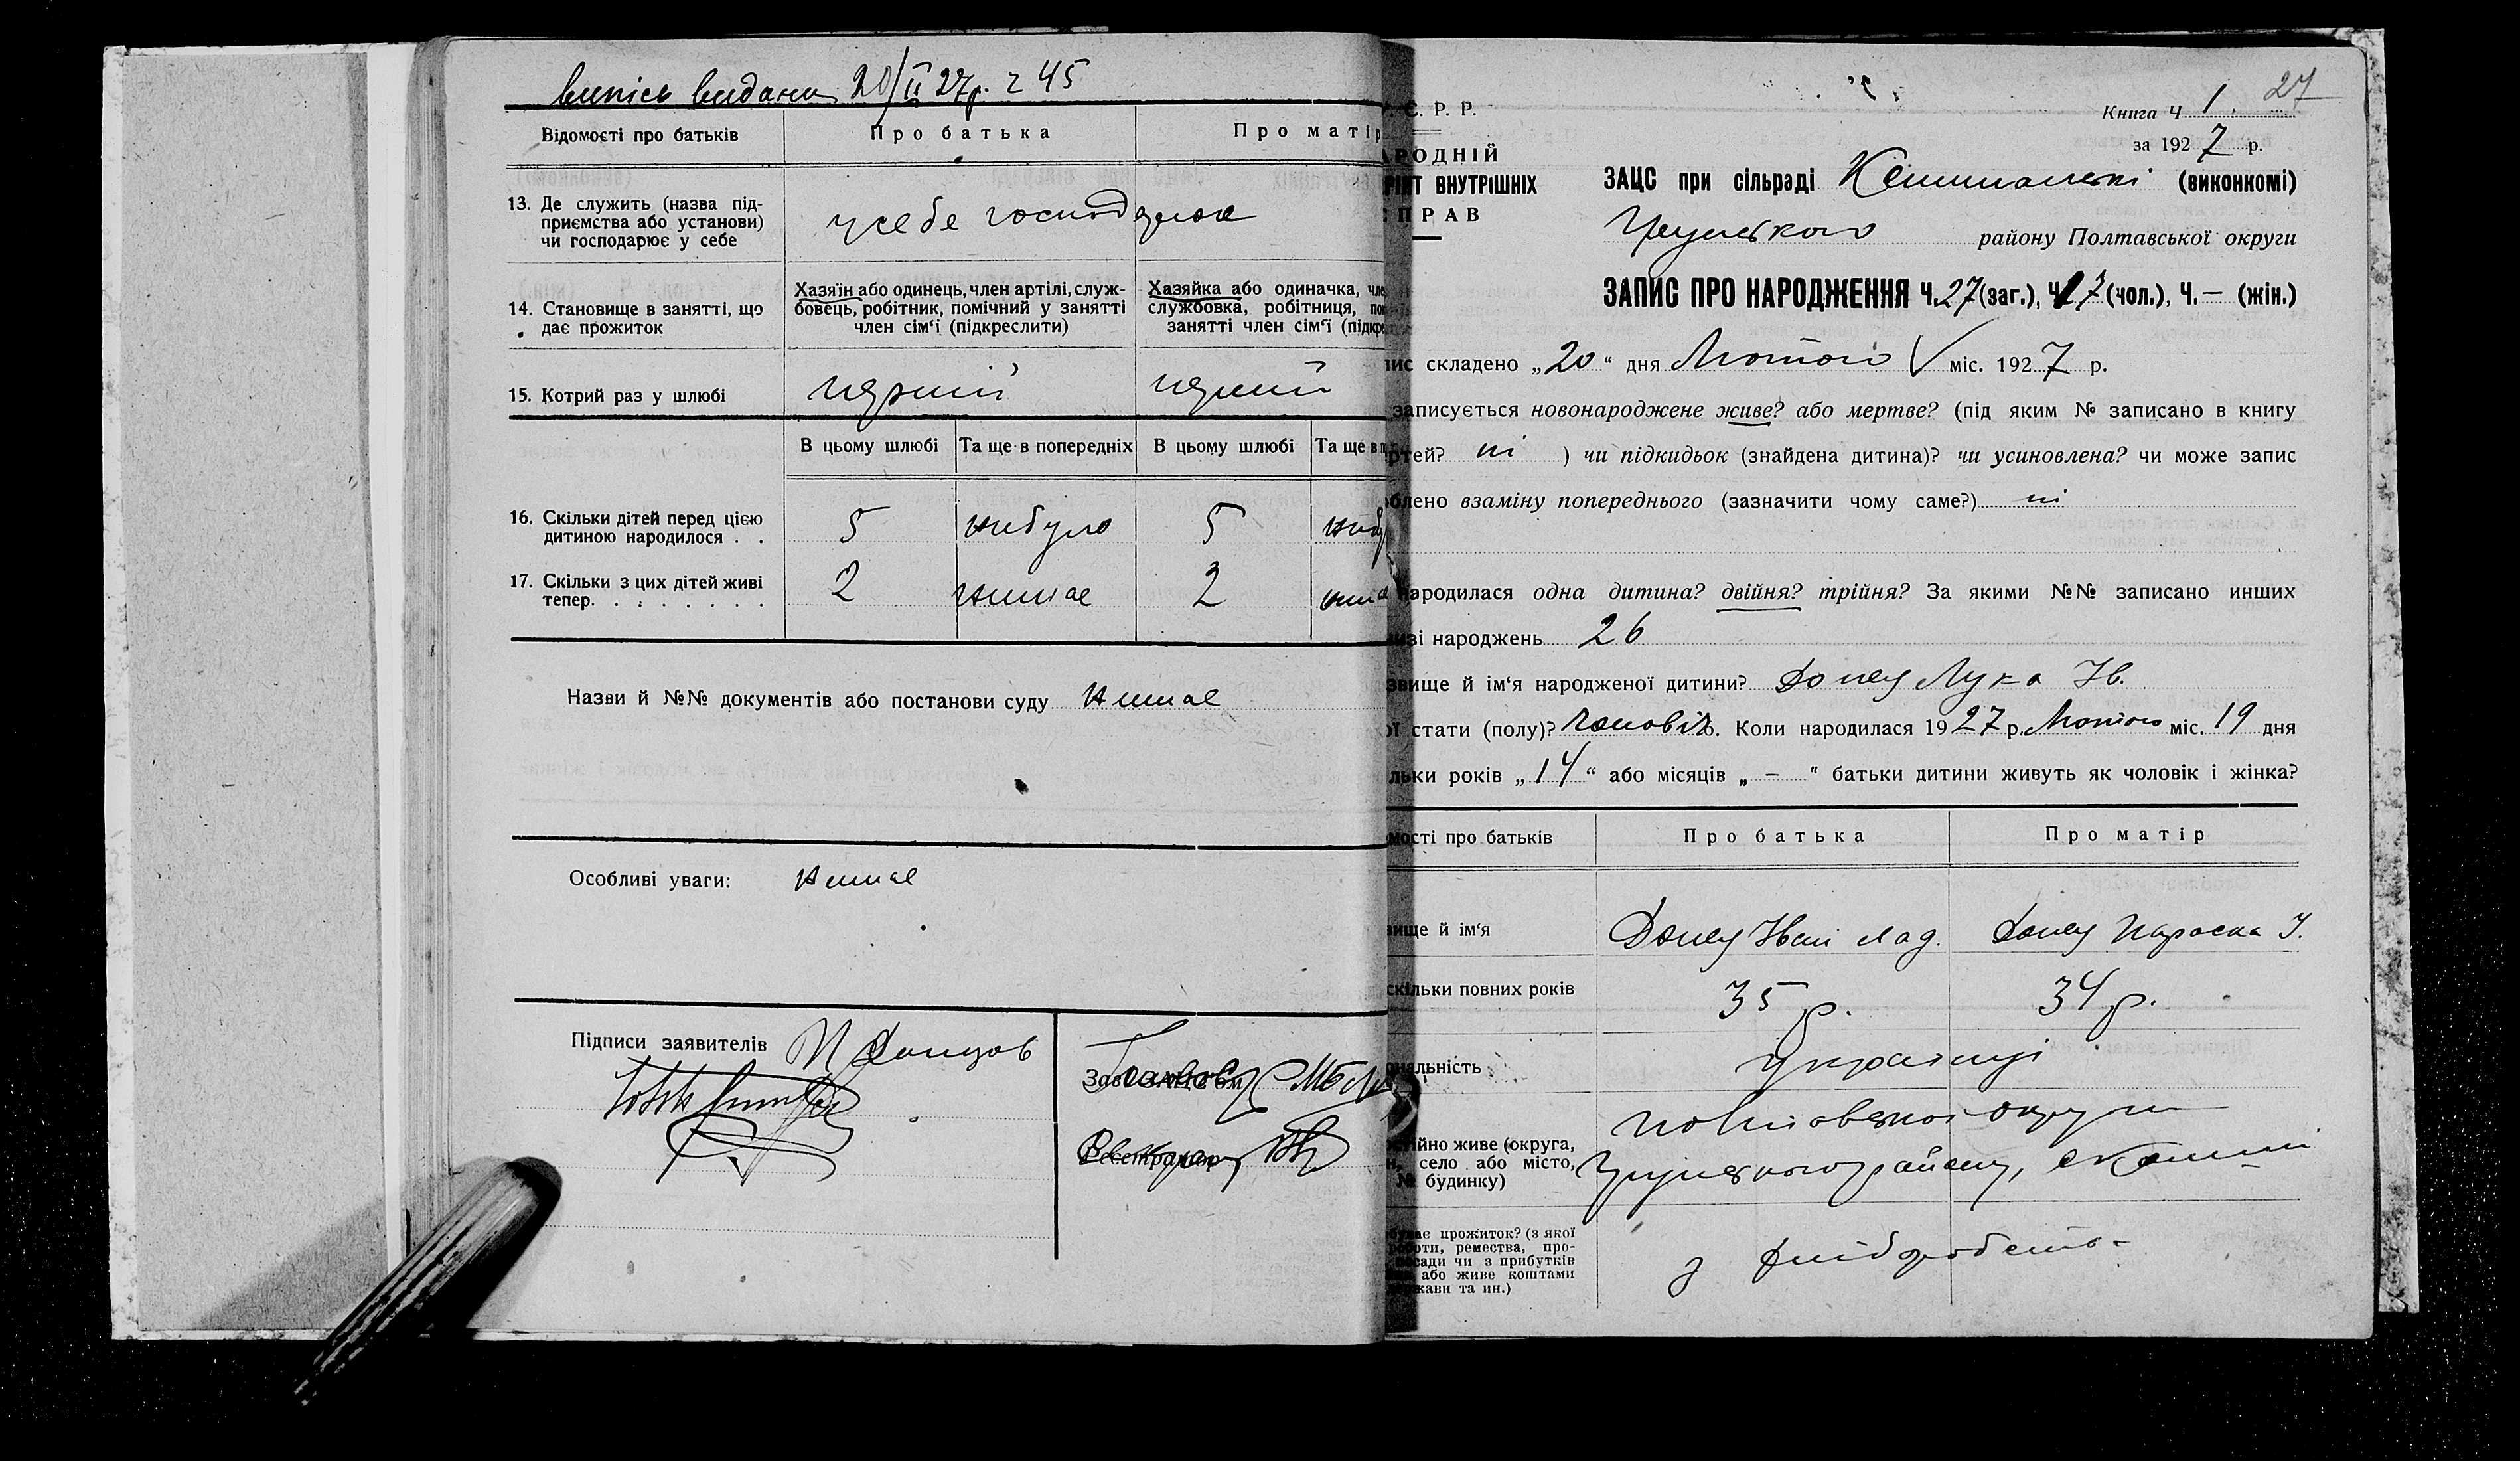 випісь видана 20/II 27р. ч 45
Відомості про батьків Про батька Про матір
13. Де служить (назва під-
приємства або установи)
чи господарює у себе
у себе господарює
14. Становище в занятті, що
дає прожиток
Хазяїн або одинець, член артілі, служ-
бовець, робітник, помічний у занятті
член сім'ї (підкреслити)
Хазяйка або одиначка, чле
службовка, робітниця, по
занятті член сім'ї (підкре
15. Котрий раз у шлюбі перший перший
В цьому шлюбі Та ще в попередніх В цьому шлюбі Та ще в п
16. Скільки дітей перед цією
дитиною народилося . . 5 небуло 5 небу
17. Скільки з цих дітей живі
тепер. . . . . . . . 2 немає 2 нема
Назви й №№ документів або постанови суду немає
Особливі уваги: немає
Підписи заявителів И Донцов
Зав. ЗАЦС'ом
Реєстратор
27
Є. Р. Р.
РОДНІЙ
РІЯТ ВНУТРІШНІХ
ПРАВ
Книга Ч 1.
за 1927 р.
ЗАЦС при сільраді (виконкомі)
району Полтавської округи
ЗАПИС ПРО НАРОДЖЕННЯ Ч. 27 (заг.), Ч 17 (чол.), Ч. — (жін.)
ис складено „20“ дня Лютого міс. 1927 р.
записується новонароджене живе? або мертве? (під яким № записано в книгу
ртей? ні ) чи підкидьок (знайдена дитина)? чи усиновлена? чи може запис
блено взаміну попереднього (зазначити чому саме?) ні
народилася одна дитина? двійня? трійня? За якими №№ записано инших
изі народжень 26
звище й ім'я народженої дитини? Донец Лука Ів.
ої стати (полу)? чоловіч. Коли народилася 1927 р. Лютого міс. 19 дня
льки років „14“ або місяців „—“ батьки дитини живуть як чоловік і жінка?
мості про батьків Про батька Про матір
вище й ім'я Донец Іван Донец Параска І.
скільки повних років 35 р. 34 р.
нальність Українці
ійно живе (округа,
н, село або місто,
№ будинку)
Полтавської округи
району,
буває прожиток? (з якої
роботи, ремества, про-
сади чи з прибутків
або живе коштами
жави та ин.)
з хліборобства